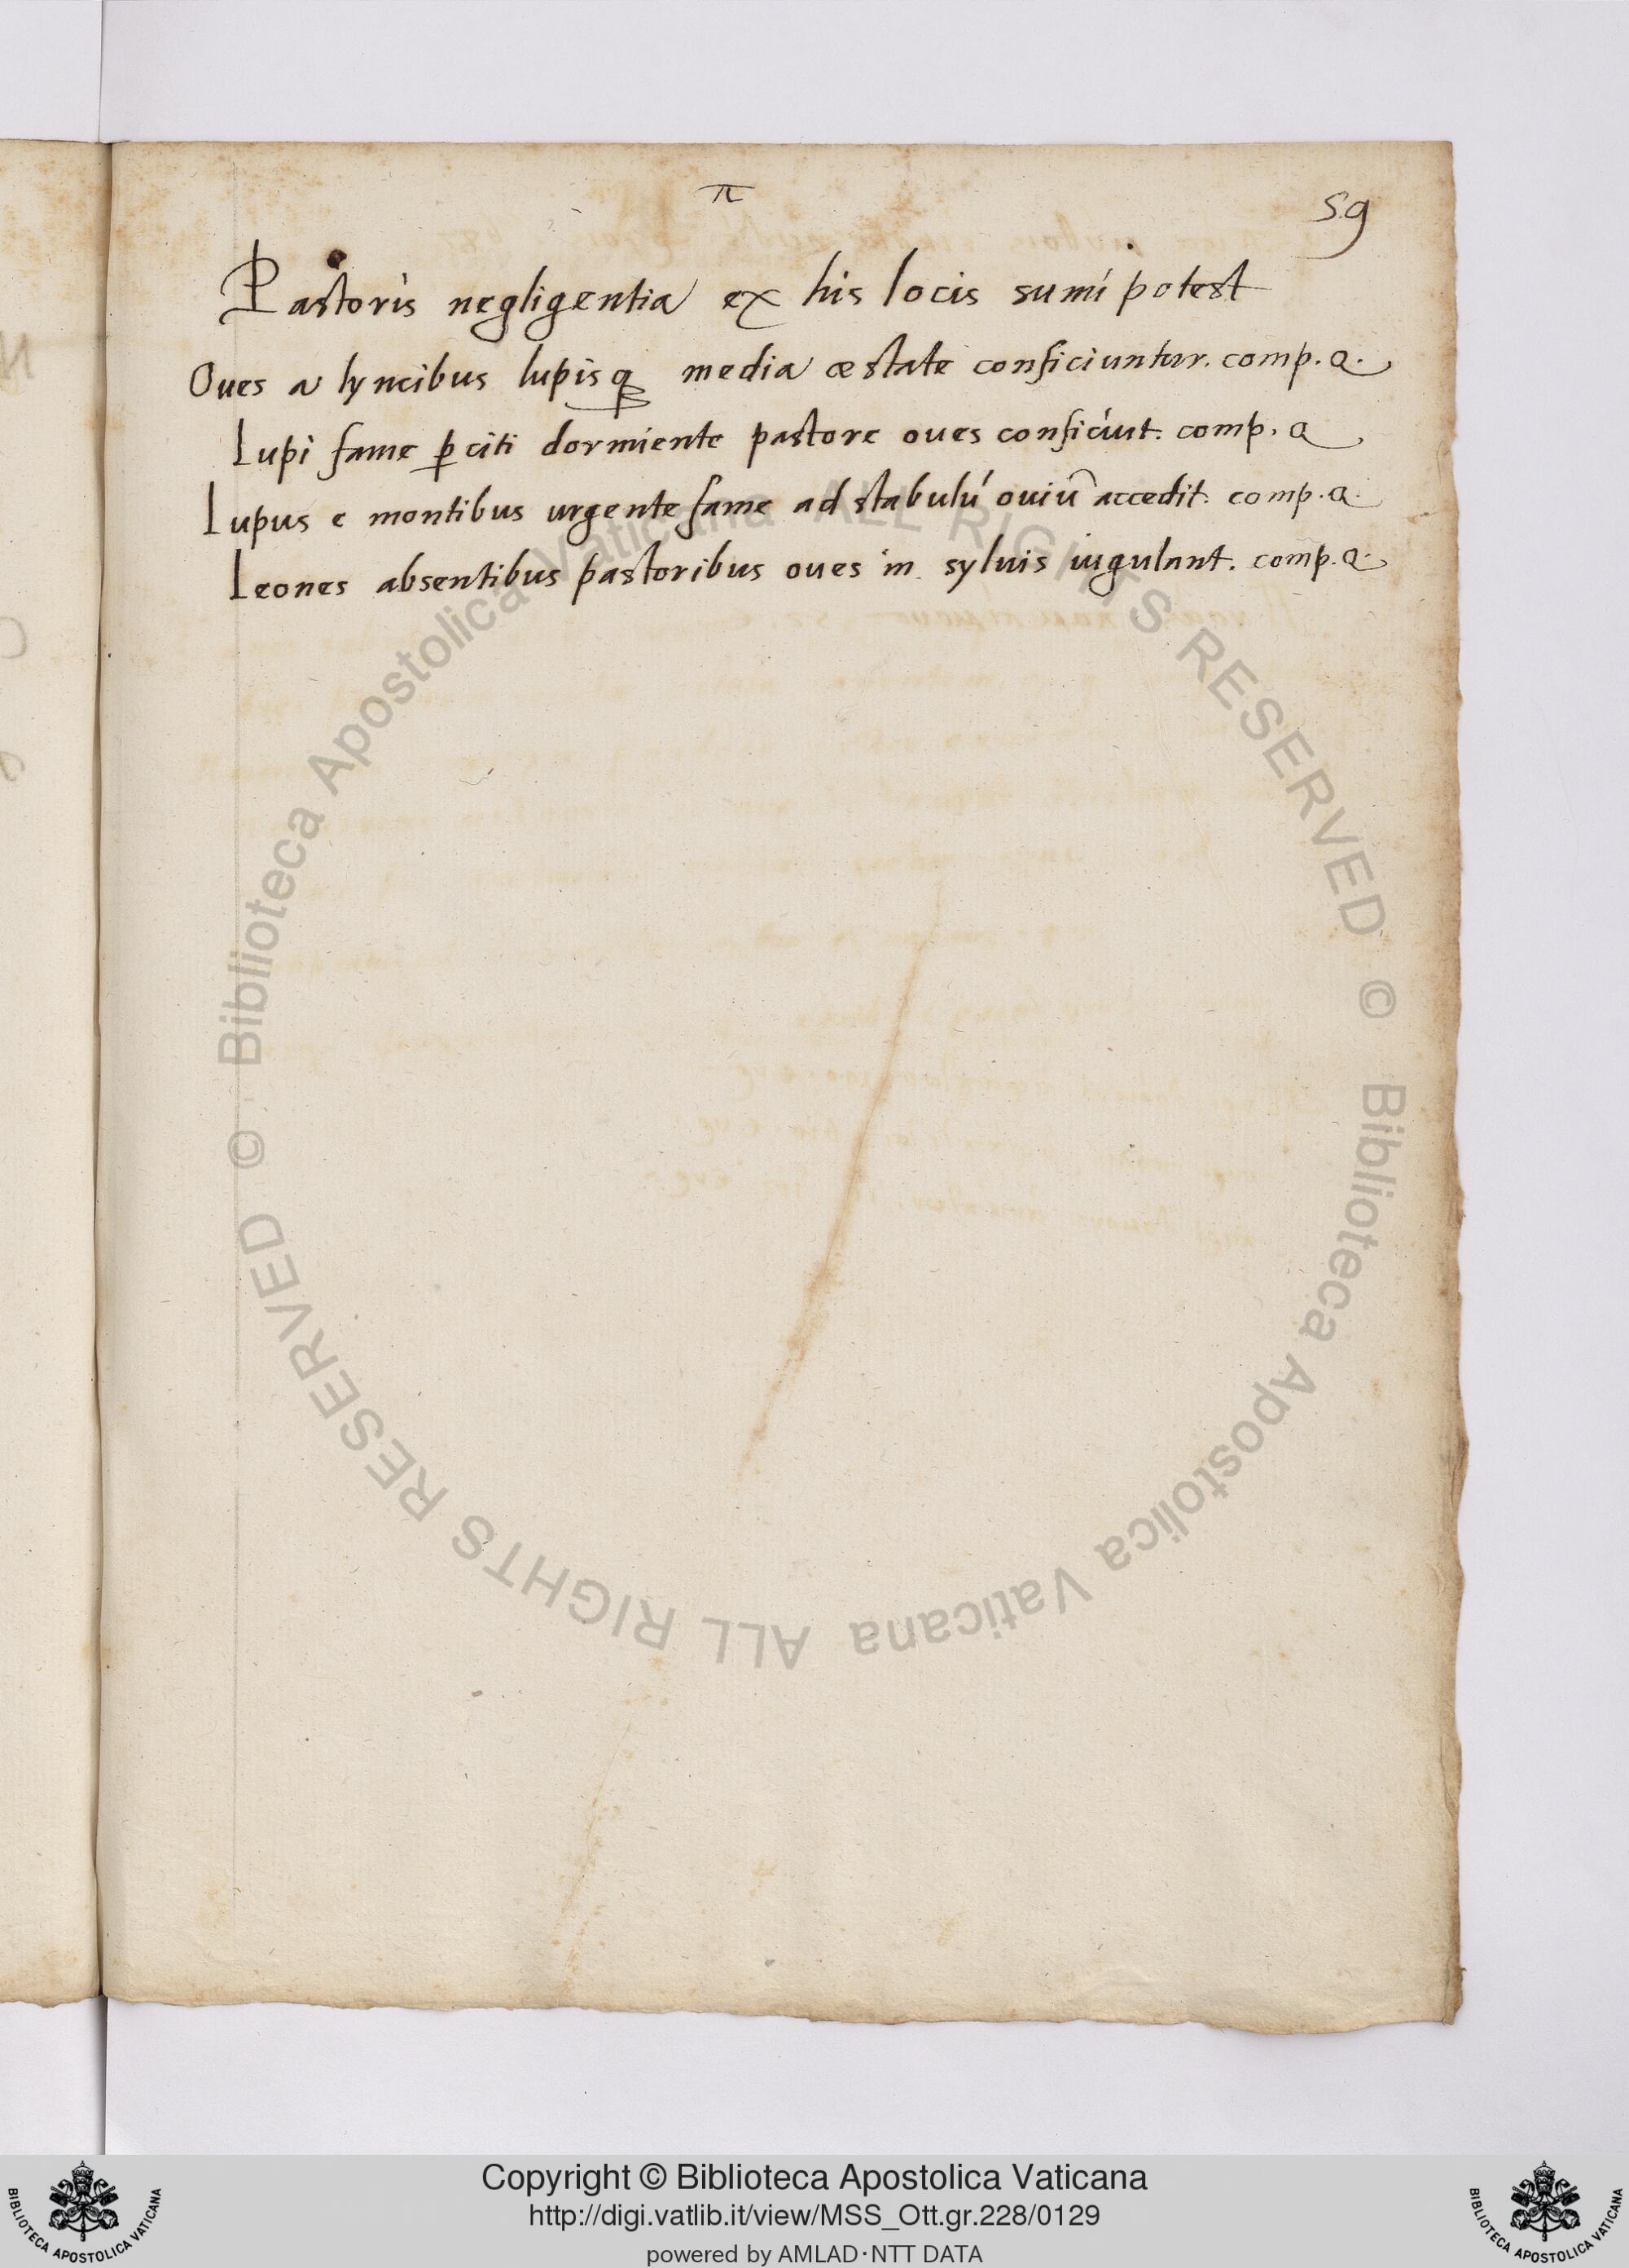 π
59
Pastoris negligentia ex his locis sumi potest
Oues a lyncibus lupisq̨ media æstate conficiuntur. comp. a.
Lupi fame ꝑciti dormiente pastore oues conficiút. comp. a
Lupus e montibus urgente fame ad stabulú ouiū accedit. comp. a.
Leones absentibus pastoribus oues in syluis iugulant. comp. a.
© Biblioteca Apostolica Vaticana ALL RIGHTS RESERVED
© Biblioteca Apostolica Vaticana ALL RIGHTS RESERVED
Copyright © Biblioteca Apostolica Vaticana
http://digi.vatlib.it/view/MSS_Ott.gr.228/0129
powered by AMLAD·NTT DATA
BIBLIOTECA APOSTOLICA VATICANA
BIBLIOTECA APOSTOLICA VATICANA